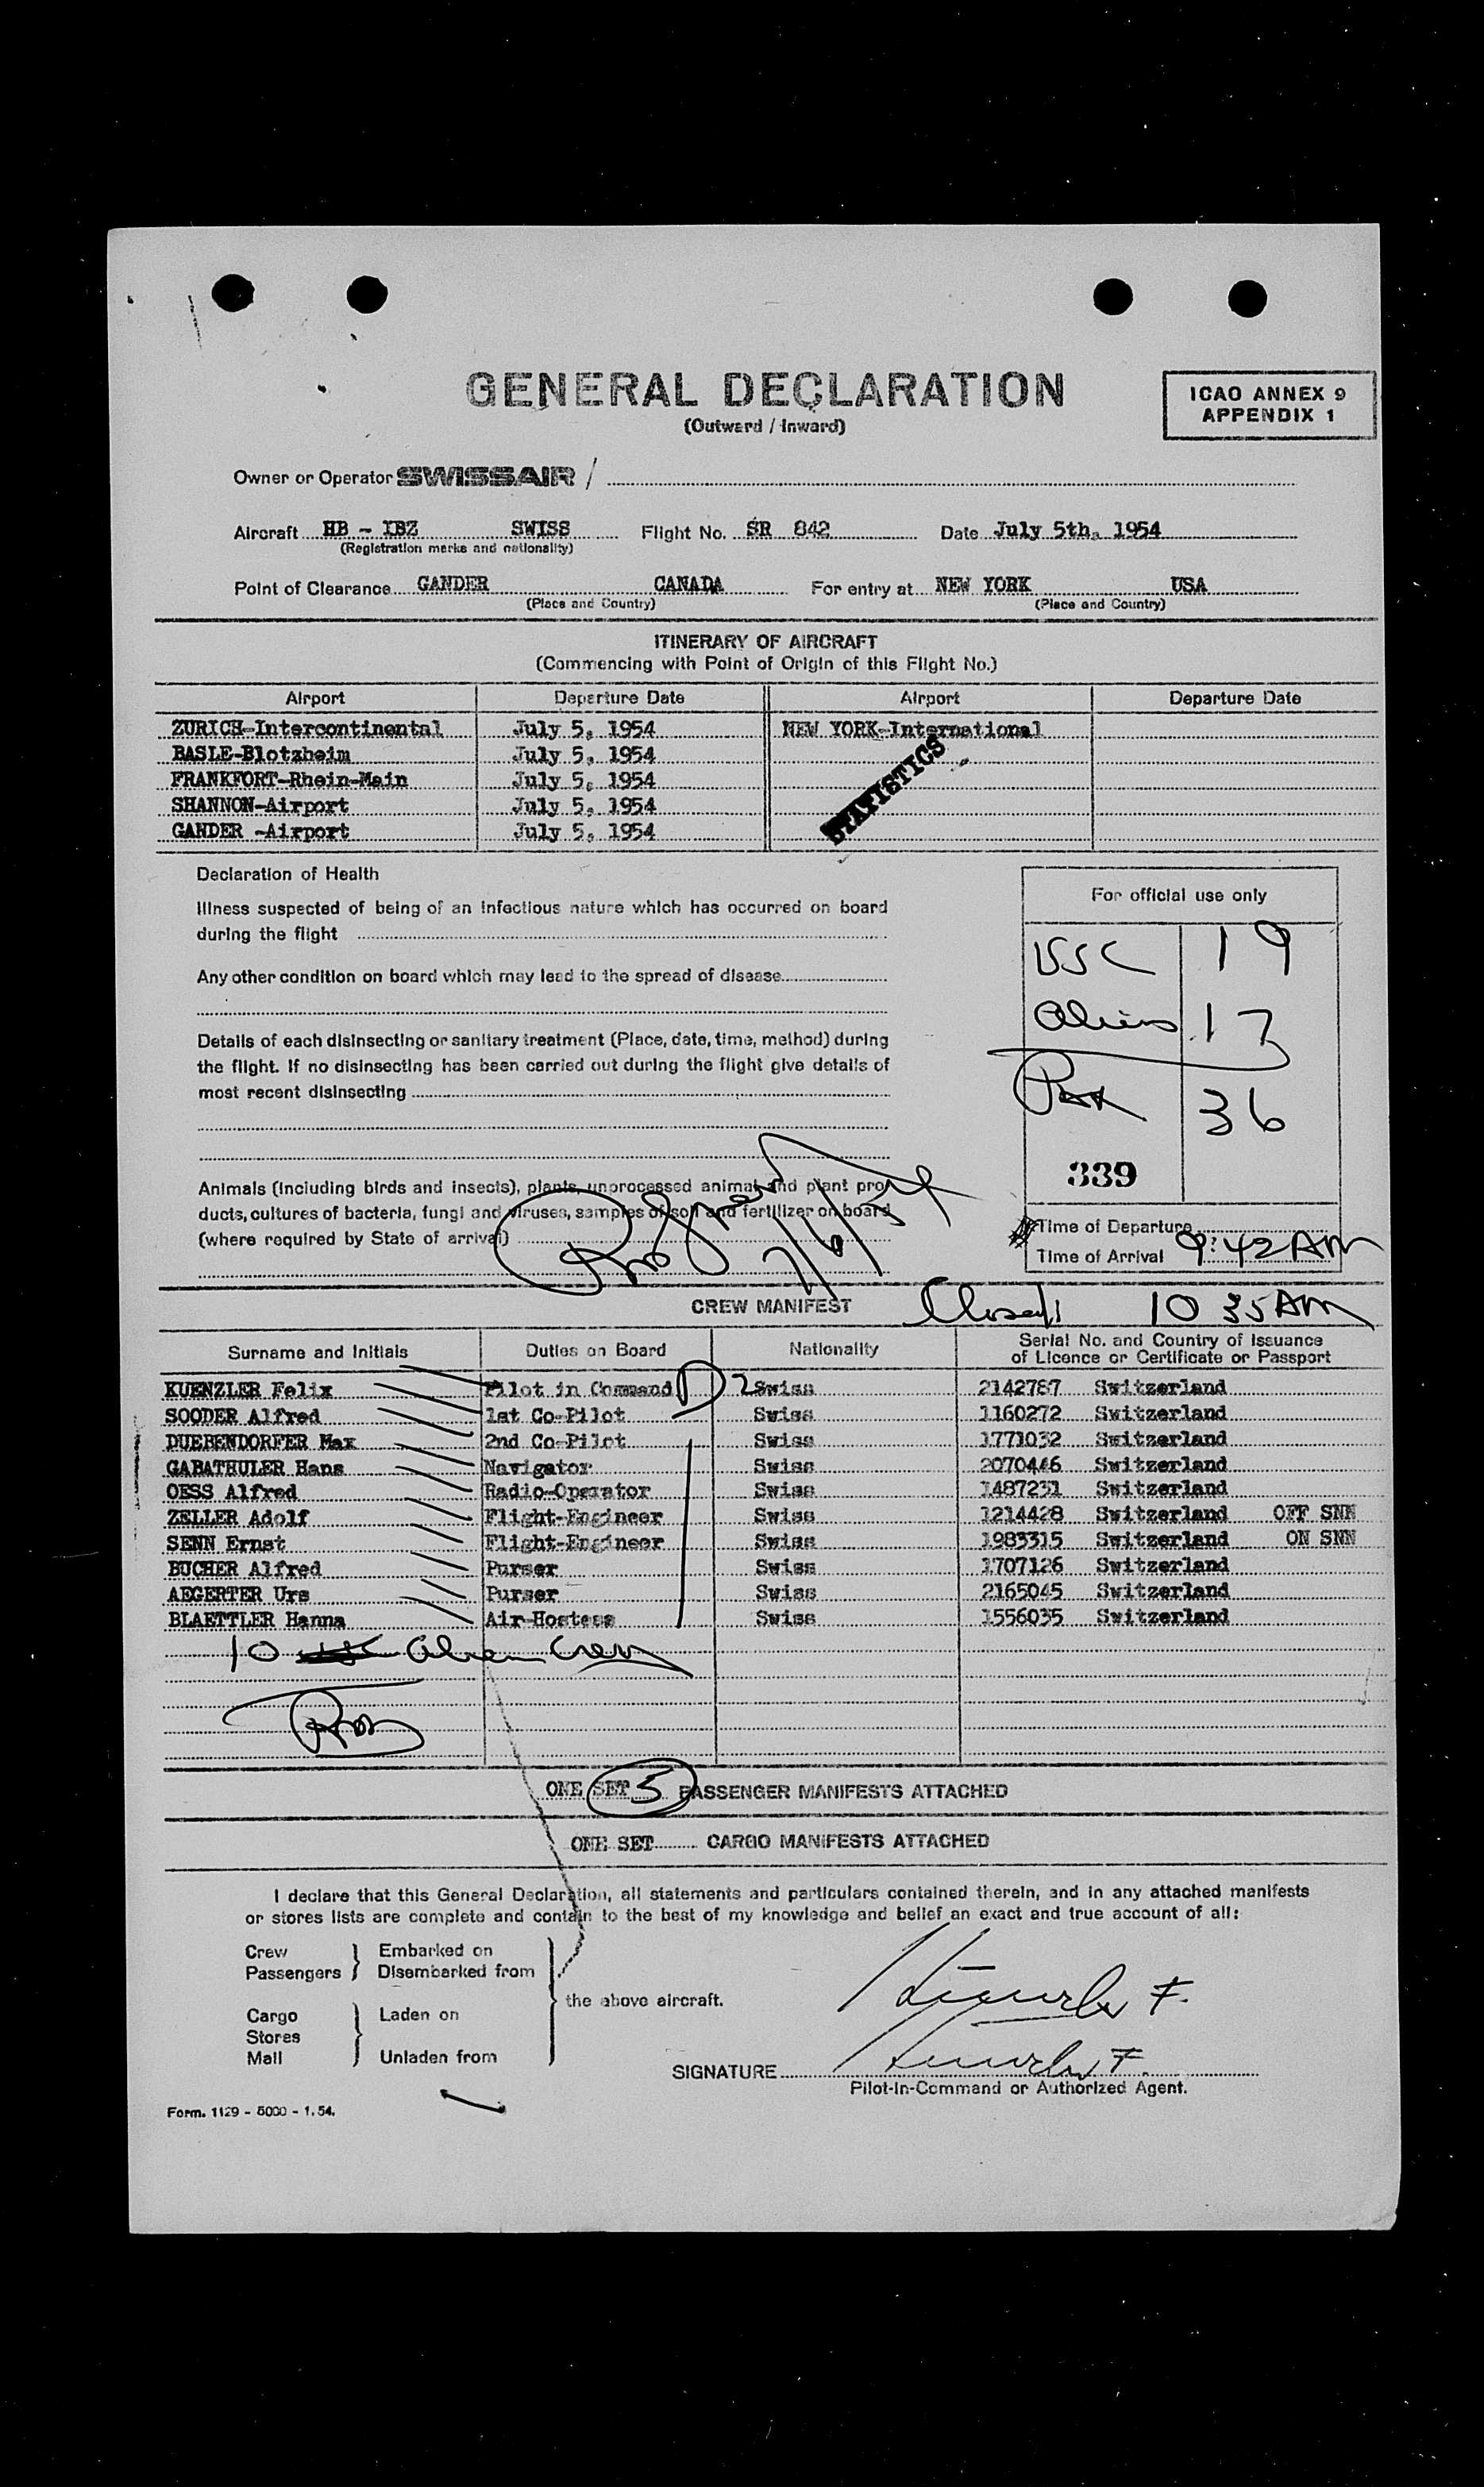 GENERAL DECLARATION
(Outward / Inward)
ICAO ANNEX 9
APPENDIX 1
Owner or Operator SWISSAIR /
Aircraft HB - IBZ SWISS Flight No. SR 842 Date July 5th, 1954
(Registration marks and nationality)
Point of Clearance GANDER CANADA For entry at NEW YORK USA
(Place and Country) (Place and Country)
ITINERARY OF AIRCRAFT
(Commencing with Point of Origin of this Flight No.)
Airport Departure Date Airport Departure Date
ZURICH-Intercontinental July 5, 1954 NEW YORK-International
BASLE-Blotzheim July 5, 1954
FRANKFORT-Rhein-Main July 5, 1954
SHANNON-Airport July 5, 1954
GANDER -Airport July 5, 1954
STATISTICS
Declaration of Health
Illness suspected of being of an infectious nature which has occurred on board
during the flight
Any other condition on board which may lead to the spread of disease
Details of each disinsecting or sanitary treatment (Place, date, time, method) during
the flight. If no disinsecting has been carried out during the flight give details of
most recent disinsecting
Animals (including birds and insects), plants, unprocessed animal and plant pro
ducts, cultures of bacteria, fungi and viruses, samples of soil and fertilizer on board
(where required by State of arrival)
7/6/54
For official use only
USC 19
Aliens 17
Pax 36
339
Time of Departure
Time of Arrival 9:42 AM
CREW MANIFEST Closed 10 35 AM
Surname and Initials Duties on Board Nationality Serial No. and Country of Issuance
of Licence or Certificate or Passport
KUENZLER Felix Pilot in Command D2 Swiss 2142787 Switzerland
SOODER Alfred 1st Co-Pilot Swiss 1160272 Switzerland
DUEBENDORFER Max 2nd Co-Pilot Swiss 1771032 Switzerland
GABATHULER Hans Navigator Swiss 2070446 Switzerland
OESS Alfred Radio-Operator Swiss 1487231 Switzerland
ZELLER Adolf Flight-Engineer Swiss 1214428 Switzerland OFF SNN
SENN Ernst Flight-Engineer Swiss 1983315 Switzerland ON SNN
BUCHER Alfred Purser Swiss 1707126 Switzerland
AEGERTER Urs Purser Swiss 2165045 Switzerland
BLAETTLER Hanna Air-Hostess Swiss 1556035 Switzerland
10 Alien Crew
ONE SET 5 PASSENGER MANIFESTS ATTACHED
ONE SET CARGO MANIFESTS ATTACHED
I declare that this General Declaration, all statements and particulars contained therein, and in any attached manifests
or stores lists are complete and contain to the best of my knowledge and belief an exact and true account of all:
Crew Embarked on
Passengers Disembarked from
the above aircraft.
Cargo Laden on
Stores
Mail Unladen from
SIGNATURE
Pilot-in-Command or Authorized Agent.
Form. 1129 - 5000 - 1. 54.